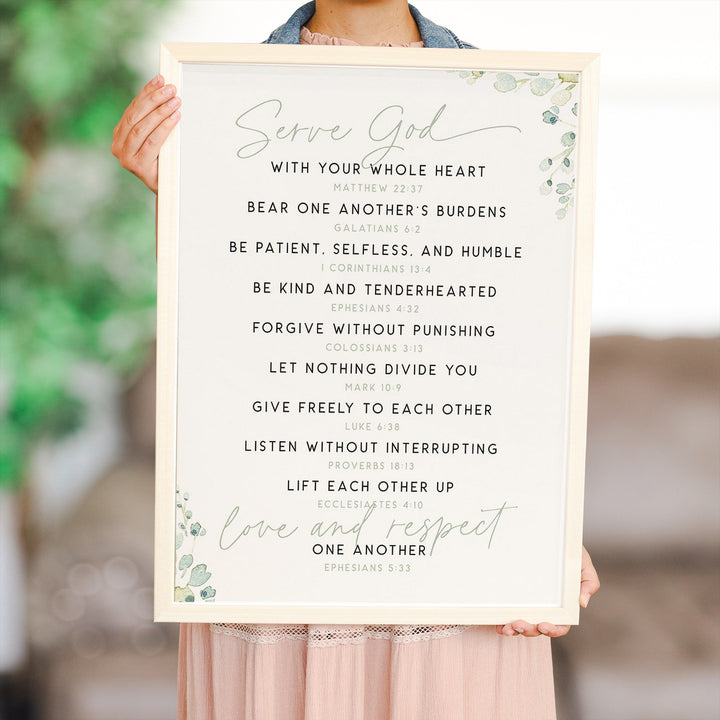 Serve God
WITH YOUR WHOLE HEART
MATTHEW 22:37
BEAR ONE ANOTHER'S BURDENS
GALATIANS 6:2
BE PATIENT, SELFLESS, AND HUMBLE
1 CORINTHIANS 13:4
BE KIND AND TENDERHEARTED
EPHESIANS 4:32
FORGIVE WITHOUT PUNISHING
COLOSSIANS 3:13
LET NOTHING DIVIDE YOU
MARK 10:9
GIVE FREELY TO EACH OTHER
LUKE 6:38
LISTEN WITHOUT INTERRUPTING
PROVERBS 18:13
LIFT EACH OTHER UP
ECCLESIASTES 4:10
love and respect
ONE ANOTHER
EPHESIANS 5:33